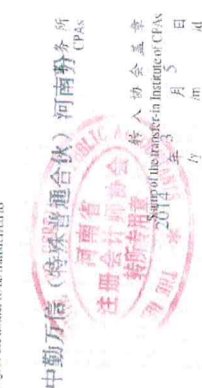 中勤万信（特殊普通合伙）河南分务所
CPAs
转入协会盖章
Stamp of the transfer-in Institute of CPAs
2014年3月5日
/y /m /d
河南省
注册会计师协会
转所专用章